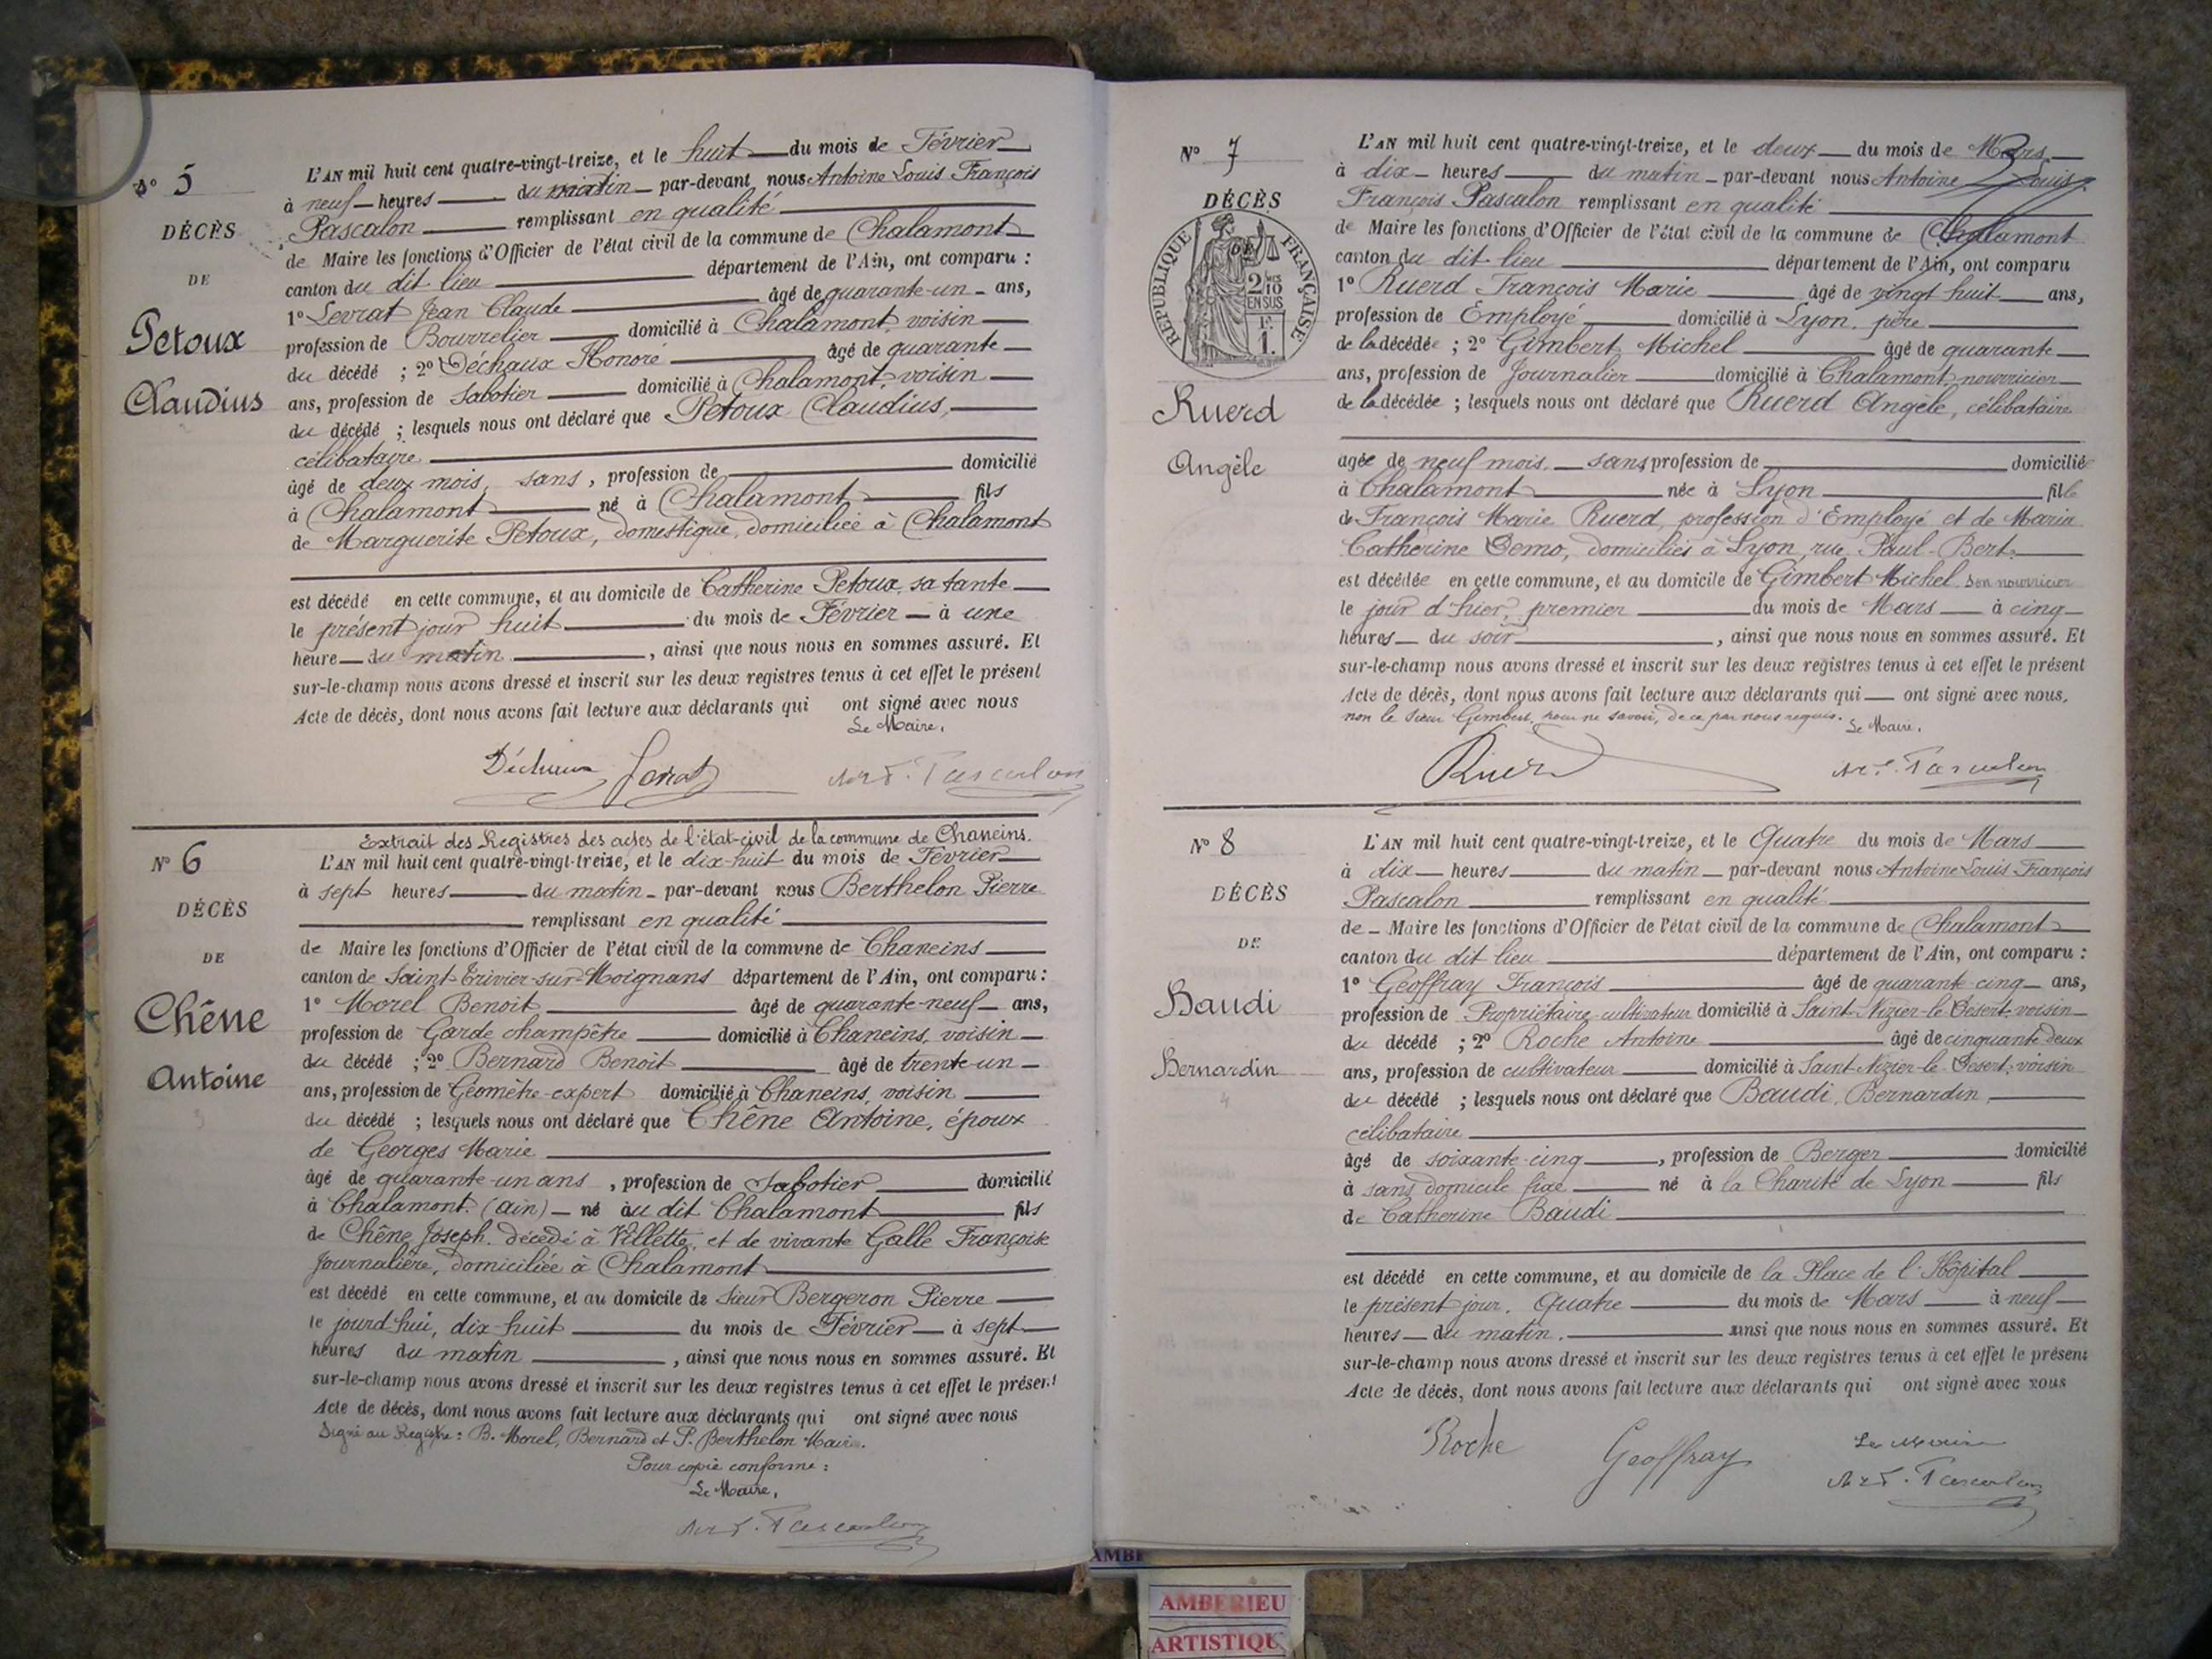 N° 5
DÉCÈS
DE
Petoux
Claudius
L'AN mil huit cent quatre-vingt-treize, et le huit du mois de Février
à neuf heures du matin par-devant nous Antoine Louis François
Pascalon remplissant en qualité
de Maire les fonctions d'Officier de l'état civil de la commune de Chalamont
canton du dit lieu département de l'Ain, ont comparu :
1° Levrat Jean Claude âgé de quarante-un ans,
profession de Bourrelier domicilié à Chalamont, voisin
du décédé ; 2° Déchaux Honoré âgé de quarante
ans, profession de Sabotier domicilié à Chalamont, voisin
du décédé ; lesquels nous ont déclaré que Petoux Claudius,
célibataire
âgé de deux mois, sans, profession de domicilié
à Chalamont né à Chalamont fils
de Marguerite Petoux, domestique, domiciliée à Chalamont
est décédé en cette commune, et au domicile de Catherine Petoux, sa tante
le présent jour huit du mois de Février à une
heure du matin, ainsi que nous nous en sommes assuré. Et
sur-le-champ nous avons dressé et inscrit sur les deux registres tenus à cet effet le présent
Acte de décès, dont nous avons fait lecture aux déclarants qui ont signé avec nous
Le Maire,
N° 6
DÉCÈS
DE
Chêne
Antoine
Extrait des Registres des actes de l'état-civil de la commune de Chaneins.
L'AN mil huit cent quatre-vingt-treize, et le dix-huit du mois de Février
à sept heures du matin par-devant nous Berthelon Pierre
remplissant en qualité
de Maire les fonctions d'Officier de l'état civil de la commune de Chaneins
canton de Saint-Trivier-sur-Moignans département de l'Ain, ont comparu :
1° Morel Benoit âgé de quarante-neuf ans,
profession de Garde champêtre domicilié à Chaneins, voisin
du décédé ; 2° Bernard Benoit âgé de trente-un
ans, profession de Géomètre-expert domicilié à Chaneins, voisin
du décédé ; lesquels nous ont déclaré que Chêne Antoine, époux
de Georges Marie
âgé de quarante-un ans, profession de Sabotier domicilié
à Chalamont (ain) né au dit Chalamont fils
de Chêne Joseph décédé à Villette, et de vivante Galle Françoise
Journalière, domiciliée à Chalamont
est décédé en cette commune, et au domicile de Sieur Bergeron Pierre
le jourd'hui, dix-huit du mois de Février à sept
heures du matin, ainsi que nous nous en sommes assuré. Et
sur-le-champ nous avons dressé et inscrit sur les deux registres tenus à cet effet le présent
Acte de décès, dont nous avons fait lecture aux déclarants qui ont signé avec nous
Signé au Registre : B. Morel, Bernard et P. Berthelon Maire.
Pour copie conforme :
Le Maire,
N° 7
DÉCÈS
DE
RÉPUBLIQUE FRANÇAISE
2/10
EN SUS
F.
1.
Ruerd
Angèle
L'AN mil huit cent quatre-vingt-treize, et le deux du mois de Mars
à dix heures du matin par-devant nous Antoine Louis
François Pascalon remplissant en qualité
de Maire les fonctions d'Officier de l'état civil de la commune de Chalamont
canton du dit lieu département de l'Ain, ont comparu
1° Ruerd François Marie âgé de vingt huit ans,
profession de Employé domicilié à Lyon, père
de la décédée ; 2° Gimbert Michel âgé de quarante
ans, profession de Journalier domicilié à Chalamont, nourricier
de la décédée ; lesquels nous ont déclaré que Ruerd Angèle, célibataire
agée de neuf mois, sans, profession de domiciliée
à Chalamont née à Lyon fille
de François Marie Ruerd, profession d'Employé et de Maria
Catherine Demo, domiciliés à Lyon, rue Paul-Bert,
est décédée en cette commune, et au domicile de Gimbert Michel son nourricier
le jour d'hier, premier du mois de Mars à cinq
heures du soir, ainsi que nous nous en sommes assuré. Et
sur-le-champ nous avons dressé et inscrit sur les deux registres tenus à cet effet le présent
Acte de décès, dont nous avons fait lecture aux déclarants qui ont signé avec nous,
non le sieur Gimbert, pour ne savoir, de ce par nous requis.
Le Maire,
Ruerd
N° 8
DÉCÈS
DE
Baudi
Bernardin
L'AN mil huit cent quatre-vingt-treize, et le Quatre du mois de Mars
à dix heures du matin par-devant nous Antoine Louis François
Pascalon remplissant en qualité
de Maire les fonctions d'Officier de l'état civil de la commune de Chalamont
canton du dit lieu département de l'Ain, ont comparu :
1° Geoffray François âgé de quarante-cinq ans,
profession de Propriétaire-cultivateur domicilié à Saint-Nizier-le-Désert, voisin
du décédé ; 2° Roche Antoine âgé de cinquante deux
ans, profession de cultivateur domicilié à Saint-Nizier-le-Désert, voisin
du décédé ; lesquels nous ont déclaré que Baudi, Bernardin,
célibataire
âgé de soixante-cinq, profession de Berger domicilié
à sans domicile fixe né à la Charité de Lyon fils
de Catherine Baudi
est décédé en cette commune, et au domicile de la Place de l'Hôpital
le présent jour, Quatre du mois de Mars à neuf
heures du matin, ainsi que nous nous en sommes assuré. Et
sur-le-champ nous avons dressé et inscrit sur les deux registres tenus à cet effet le présent
Acte de décès, dont nous avons fait lecture aux déclarants qui ont signé avec nous
Roche Geoffray Le Maire
AMBE
AMBERIEU
ARTISTIQU